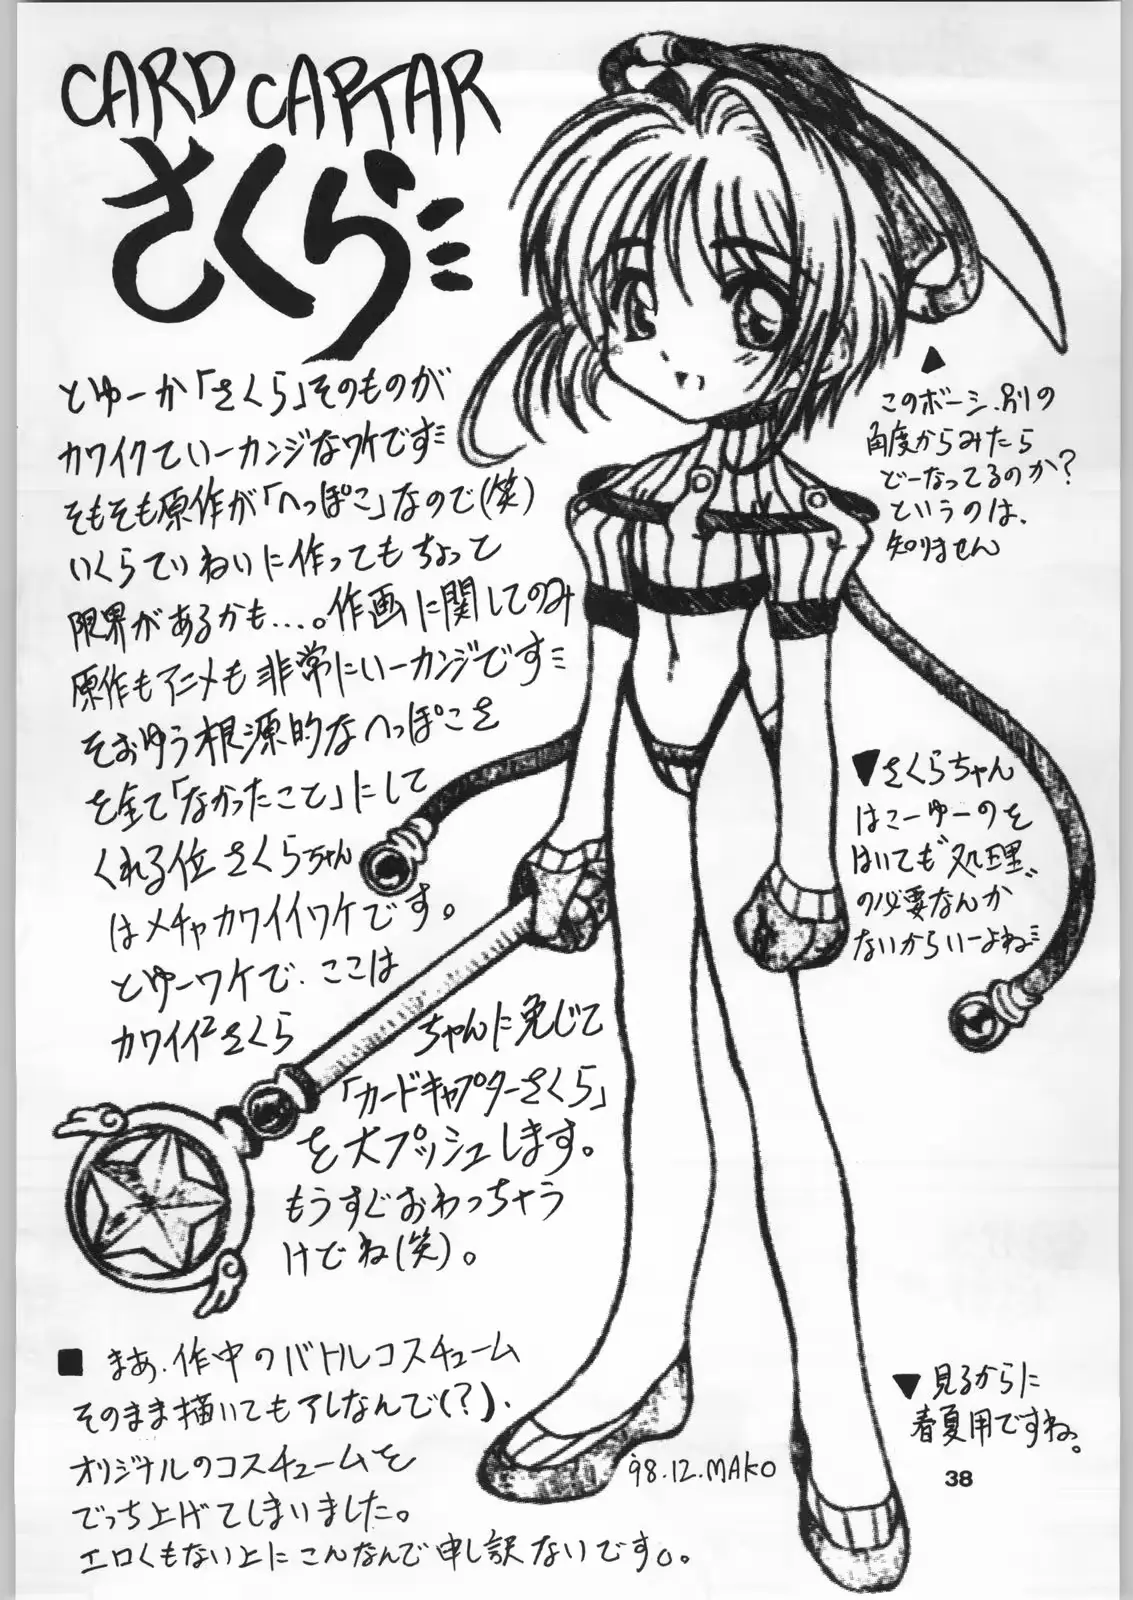 CARD CAPTAR
さくら
とゆーか「さくら」そのものが
カワイクていーカンジなワケです
そもそも原作が「へっぽこ」なので(笑)
いくらていねいに作ってもちょっと
限界があるかも...。作画に関してのみ
原作もアニメも非常にいーカンジです
そおゆう根源的なへっぽこさ
を全て「なかったこと」にして
くれる位さくらちゃん
はメチャカワイイワケです。
とゆーワケで、ここは
カワイイ2さくら ちゃんに免じて
「カードキャプターさくら」
を大プッシュします。
もうすぐおわっちゃう
けどね(笑)。
▲
このボーシ、別の
角度からみたら
どーなってるのか?
というのは、
知りません
▼さくらちゃん
はこーゆーのを
はいても"処理"
の必要なんか
ないからいーよね
■ まあ、作中のバトルコスチューム
そのまま描いてもアレなんで(?)、
オリジナルのコスチュームを
でっち上げてしまいました。
エロくもない上にこんなんで申し訳ないです。。
▼見るからに
春夏用ですね。
'98.12.MAKO
38